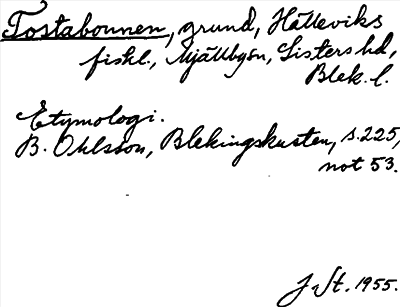 Tostabounen, grund, Hälleviks
fiskl., Mjällbysn, Listers hd,
Blek. l.
Etymologi.
B. Ohlsson, Blekingskusten, s. 225,
not 53.
J St. 1955.